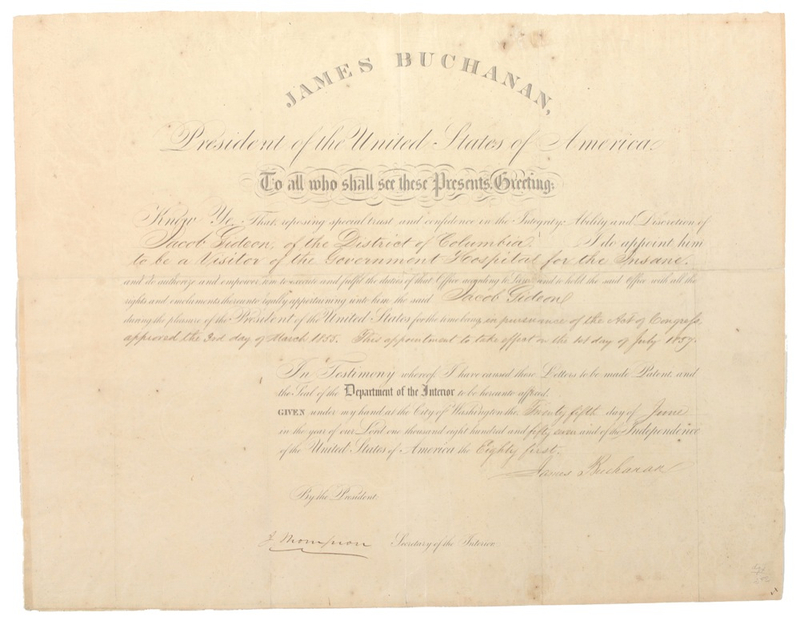 JAMES BUCHANAN,
President of the United States of America.
To all who shall see these Presents, Greeting:
Know Ye, That, reposing special trust and confidence in the Integrity, Ability and Discretion of
Jacob Gideon, of the District of Columbia I do appoint him
to be a Visitor of the Government Hospital for the Insane,
and do authorize and empower him to execute and fulfil the duties of that Office according to Law and to hold the said Office with all the
rights and emoluments thereunto legally appertaining unto him the said Jacob Gideon
during the pleasure of the President of the United States for the time being, in pursuance of the Act of Congress,
approved the 3rd day of March 1855. This appointment to take effect on the 1st day of July 1857.
In Testimony whereof, I have caused these Letters to be made Patent and
the Seal of the Department of the Interior to be hereunto affixed.
GIVEN under my hand at the City of Washington the Twenty fifth day of June
in the year of our Lord one thousand eight hundred and fifty seven and of the Independence
of the United States of America the Eighty first.
James Buchanan
By the President.
J Thompson Secretary of the Interior.